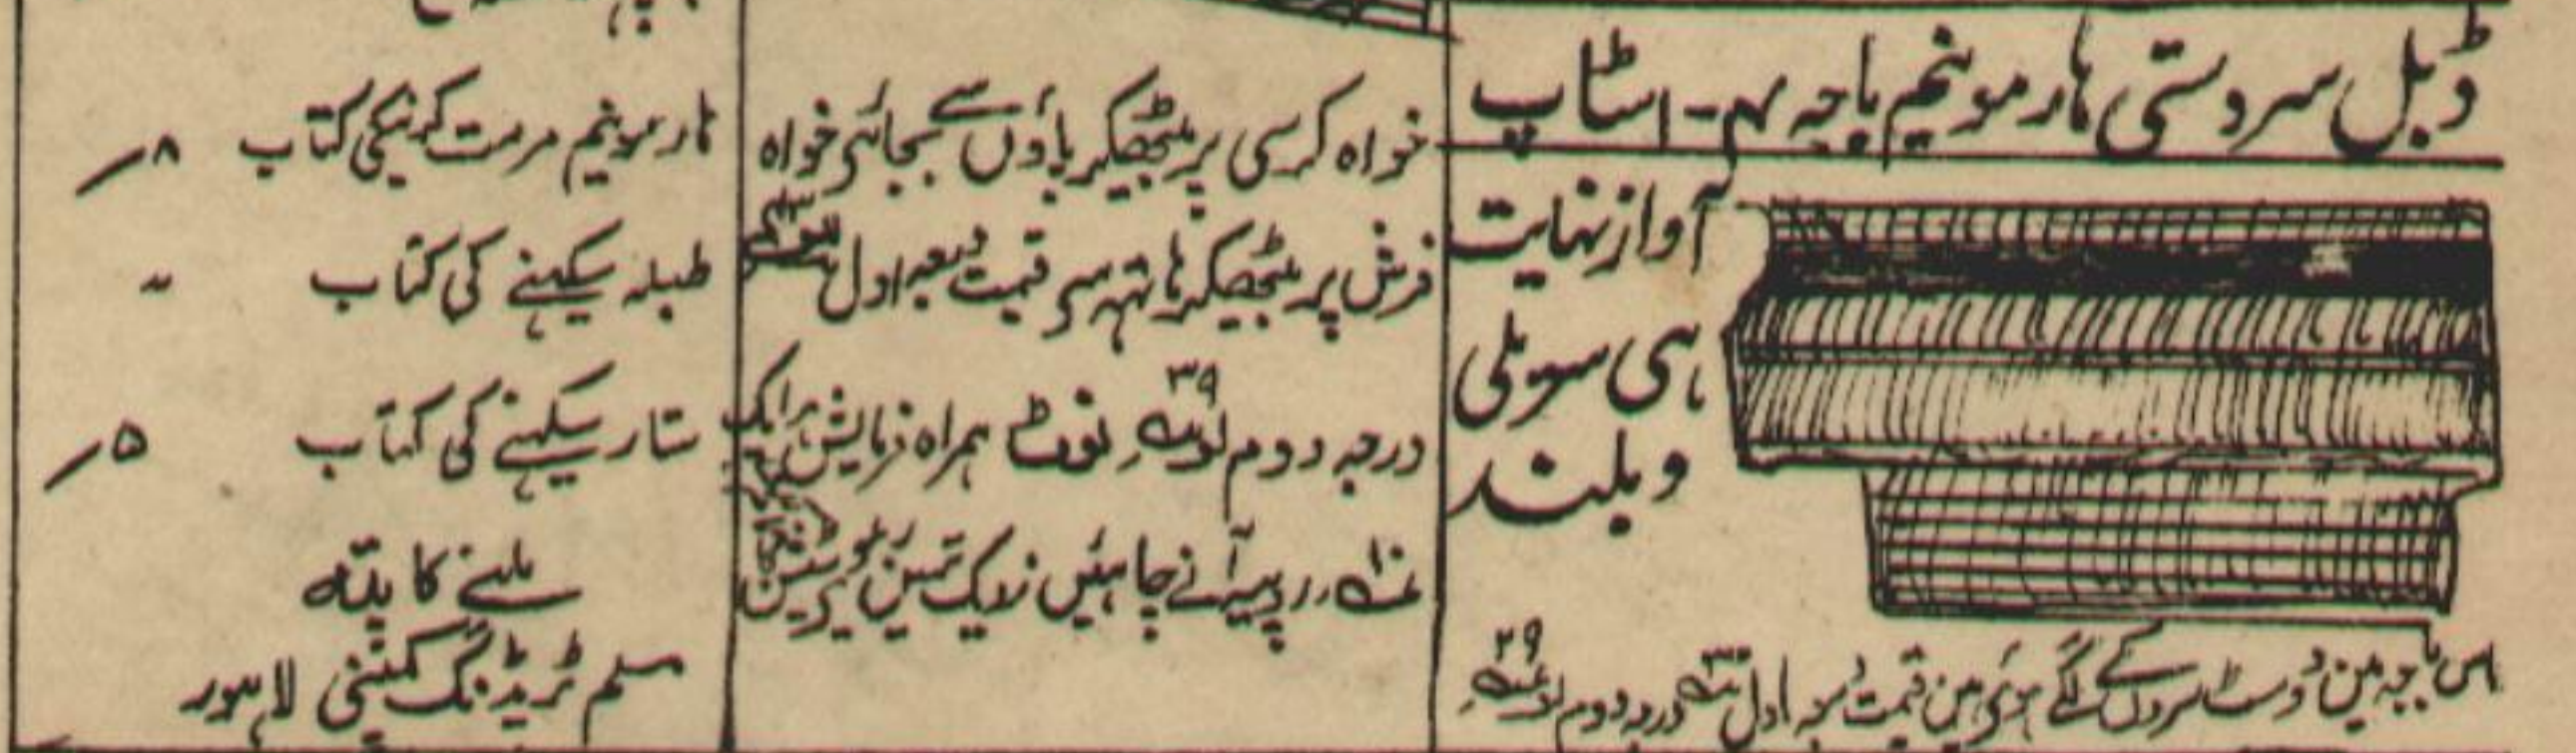 ڈبل سر دستی ہارمونیم باجہ ۴م - اسٹاپ
آواز نہایت
ہی سریلی
و بلند
اس باجہ مین دو سٹ سروں کے لگے ہوئی ہین قیمت درجہ اول درجہ دوم ۲۹
خواہ کرسی پر بیٹھکر پاؤں سے بجائی خواہ
فرش پر بیٹھکر ہاتہہ سی قیمت درجہ اول
درجہ دوم ۳۹ نوٹ ہمراہ فرمایش
روپیہ آنے چاہئیں
ہارمونیم مرمت کرنیکی کتاب ۸ر
طبلہ سیکہنے کی کتاب ”
ستار سیکہنے کی کتاب ۵ر
ملنے کا پتہ
مسلم ٹریڈنگ کمپنی لاہور